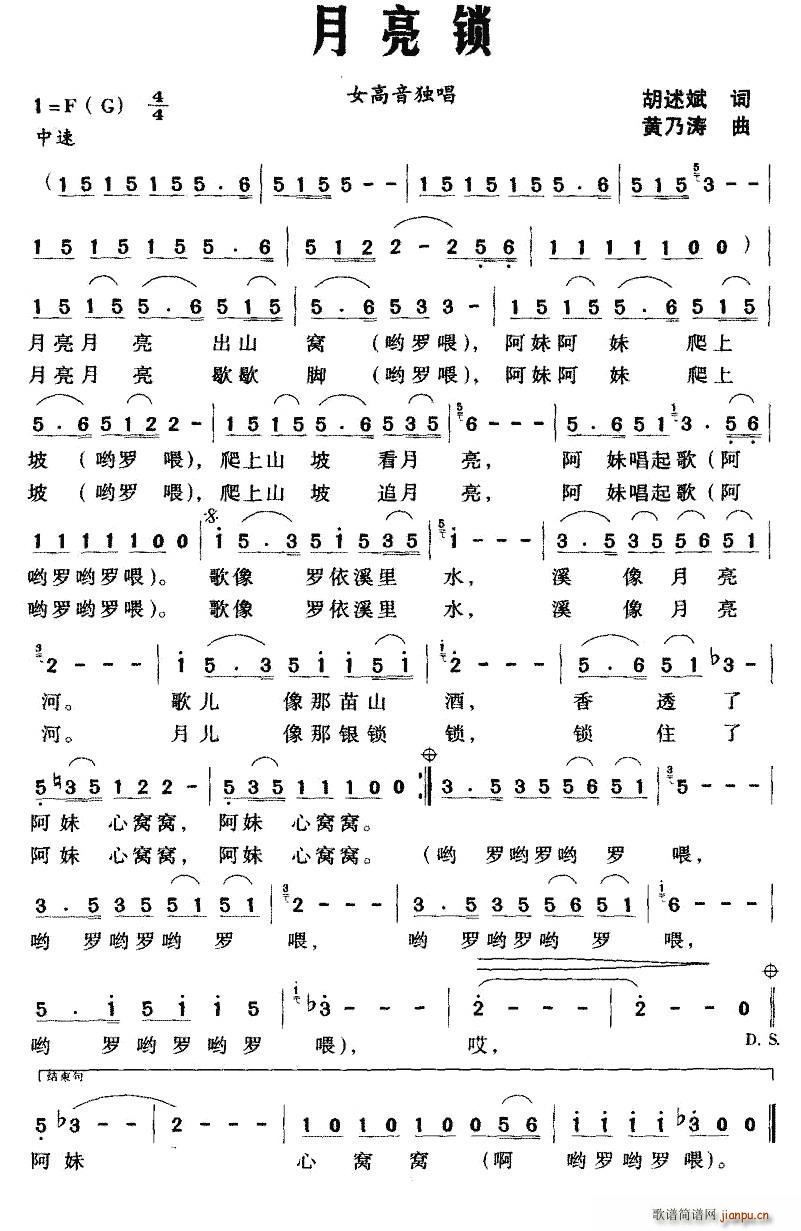 月亮锁
女高音独唱
1=F(G) 4/4
胡述斌 词
中速
黄乃涛 曲
(1 5 1 5 1 5 5 . 6 | 5 1 5 5 - - | 1 5 1 5 1 5 5 . 6 | 5 1 5 3 - - |
1 5 1 5 1 5 5 . 6 | 5 1 2 2 - 2 5 6 | 1 1 1 1 1 0 0 )
1 5 1 5 5 . 6 5 1 5 | 5 . 6 5 3 3 - | 1 5 1 5 5 . 6 5 1 5 |
月亮月 亮 出山 窝 (哟罗喂), 阿妹阿 妹 爬上
月亮月 亮 歇歇 脚 (哟罗喂), 阿妹阿 妹 爬上
5 . 6 5 1 2 2 - | 1 5 1 5 5 . 6 5 3 5 | 6 - - - | 5 . 6 5 1 3 . 5 6 |
坡 (哟罗 喂), 爬上山 坡 看月 亮, 阿 妹唱起歌(阿
坡 (哟罗 喂), 爬上山 坡 追月 亮, 阿 妹唱起歌(阿
1 1 1 1 1 0 0 | i 5 . 3 5 1 5 3 5 | i - - - | 3 . 5 3 5 5 6 5 1 |
哟罗哟罗喂)。 歌像 罗依溪里 水, 溪 像月亮
哟罗哟罗喂)。 歌像 罗依溪里 水, 溪 像月亮
2 - - - | i 5 . 3 5 i i 5 i | 2 - - - | 5 . 6 5 1 ♭3 - |
河。 歌儿 像那苗山 酒, 香 透了
河。 月儿 像那银锁 锁, 锁 住了
5 ♮3 5 1 2 2 - | 5 3 5 1 1 0 0 :| 3 . 5 3 5 5 6 5 1 | 5 - - - |
阿妹 心窝窝, 阿妹 心窝窝。
阿妹 心窝窝, 阿妹 心窝窝。 (哟 罗哟罗哟 罗 喂,
3 . 5 3 5 5 1 5 1 | 2 - - - | 3 . 5 3 5 5 6 5 1 | 6 - - - |
哟 罗哟罗哟 罗 喂, 哟 罗哟罗哟 罗 喂,
5 . i 5 i i 5 | ♭3 - - - | 2 - - - | 2 - - 0 ‖
哟 罗哟罗哟罗 喂), 哎,
D.S.
结束句
5 ♭3 - - | 2 - - - | 1 0 1 0 1 0 0 5 6 | i i i i ♭3 0 0 ‖
阿妹 心 窝 窝 (啊 哟罗哟罗喂)。
歌谱简谱网
jianpu.cn